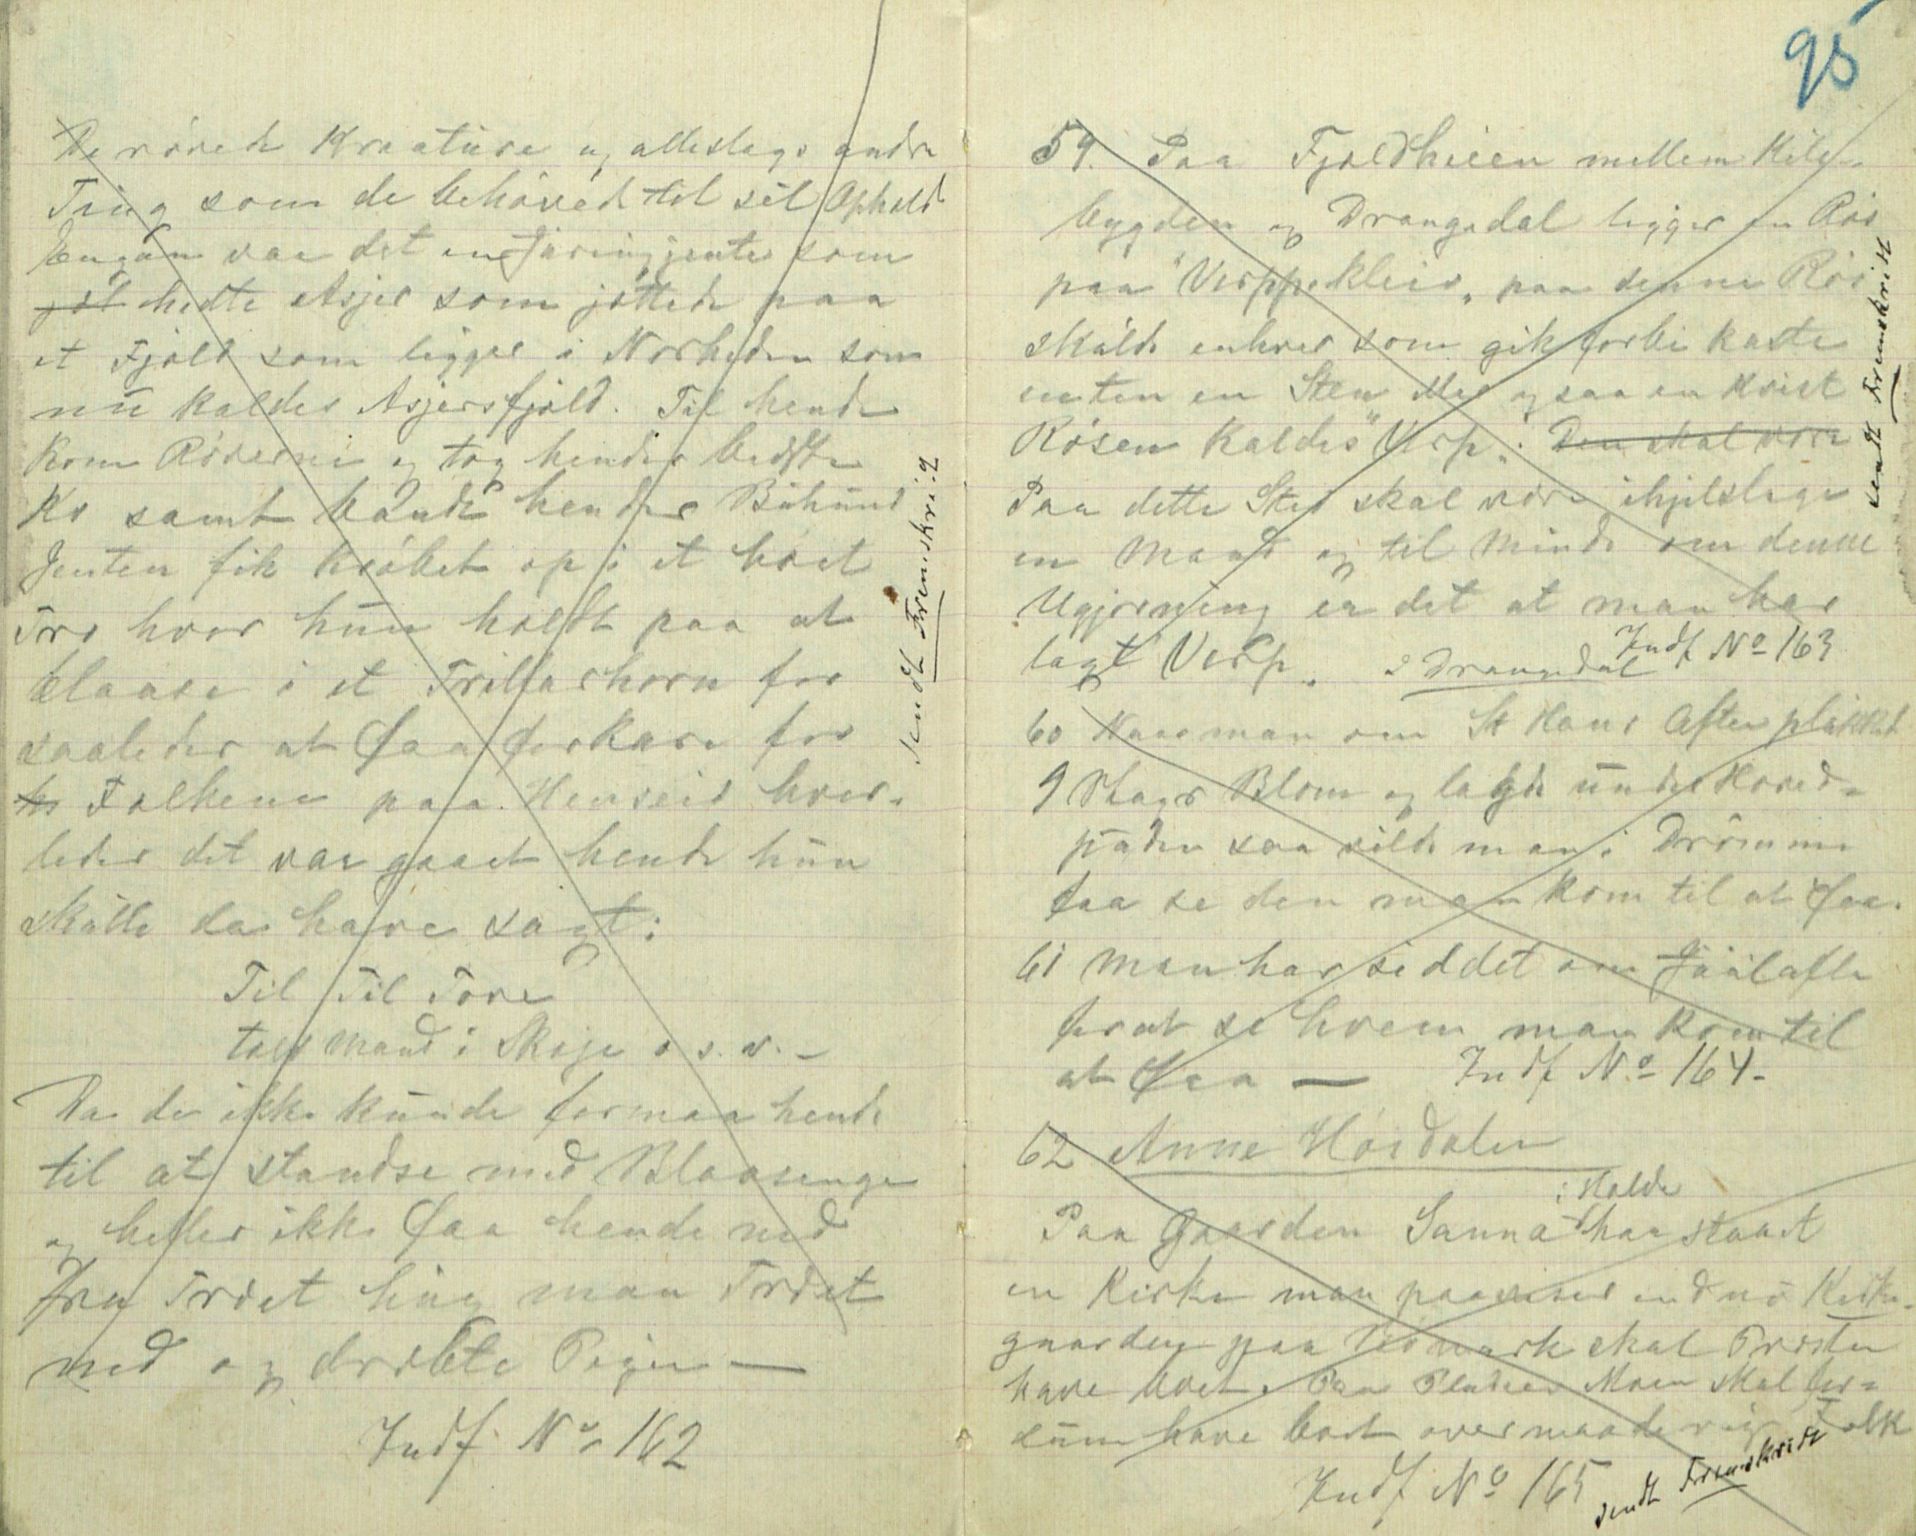 De røvede Kreature og alleslags andre
Ting som de behøvede til sit Ophold
Engang var det en Gjæringjente som
gjæt hedte Asjer som jættede paa
et Fjæld som ligger i Norheden som
nu kaldes Asjersfjæld. Til hende
kom Røverne og tog hendes bedste
Ko samt bandt hendes Buhund
Jenten fik krøbet op i et høit
Træ hvor hun holdt paa at
blaase i et Trillarhorn for
saaledes at faa forkare for
Folkene paa Henseid hvor-
ledes det var gaaet hende hun
skulle da have sagt:
Til Til Tove
tolv mand i Skoge o. s. v. –
Da de ikke kunde formaa hende
til at standse med Blaasingen
og heller ikke faa hende ned
fra Træet hug man Træet
ned og dræbte Pigen —
Indf No 162
sendt Fremskrid
95
59. Paa Fjeldheien mellem Kile-
bygden og Drangedal ligger en Røs
paa "Verppekleiv" paa denne Røs
skulde enhver som gik forbi kaste
enten en Sten eller ogsaa en Kvist
Røsen kaldes "Verp". Den skal være
Paa dette Sted skal være ihjelslaget
en Mand og til Minde om denne
Ugjerning er det at man har
lagt Verp. i Drangedal Indf No 163
sendt Fremskridt
60 Naar man om St Hans Aften plukket
9 Slags Blom og lagde under Hoved-
puden saa vilde man i Drømme
faa se den man kom til at faa.
61 Man har siddet om Juulaften
for at se hvem man kom til
at faa — Indf No 164-
62 Anne Høidalen
Paa Gaarden Sanna i Holde har staaet
en Kirke man paaviser endnu Kirke-
gaarden paa skal Præsten
have boet. Paa Moen skal for-
dum have boet overmaade rige Folk
Indf No 165
sendt Fremskridt